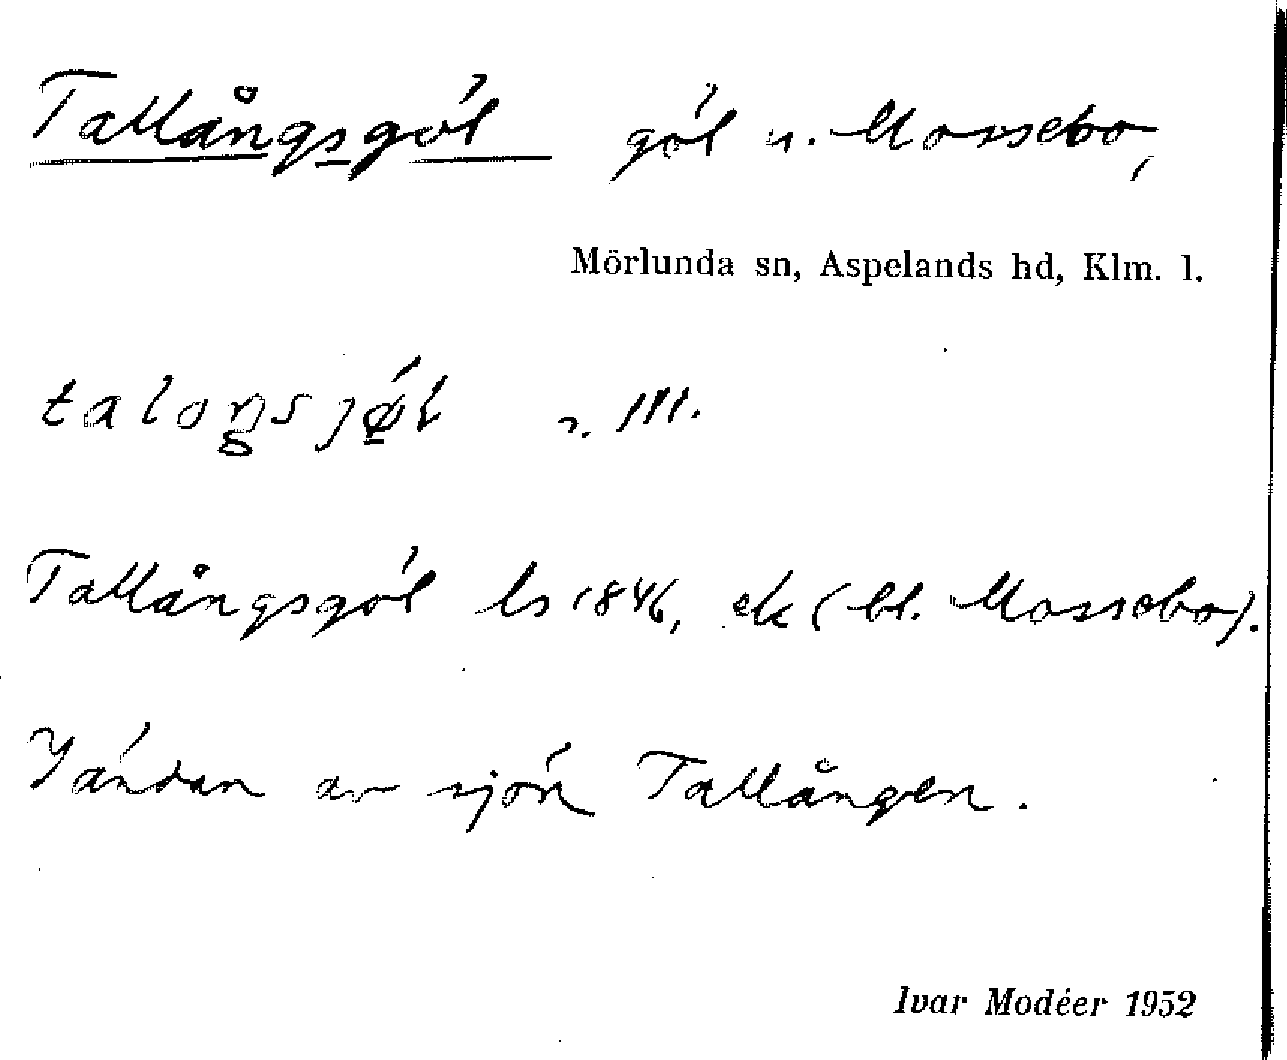 Tallångsgöl göl u. Mossebo,
Mörlunda sn, Aspelands hd, Klm. l.
Tallångsgöl ls 1846, ek (bl. Mossebo).
I ändan av sjön Tallången.
Ivar Modéer 1952